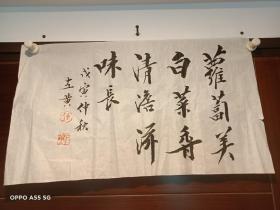 蘿蔔美
白菜香
清澹滋
味長
戊寅仲秋
左黄
OPPO A55 5G